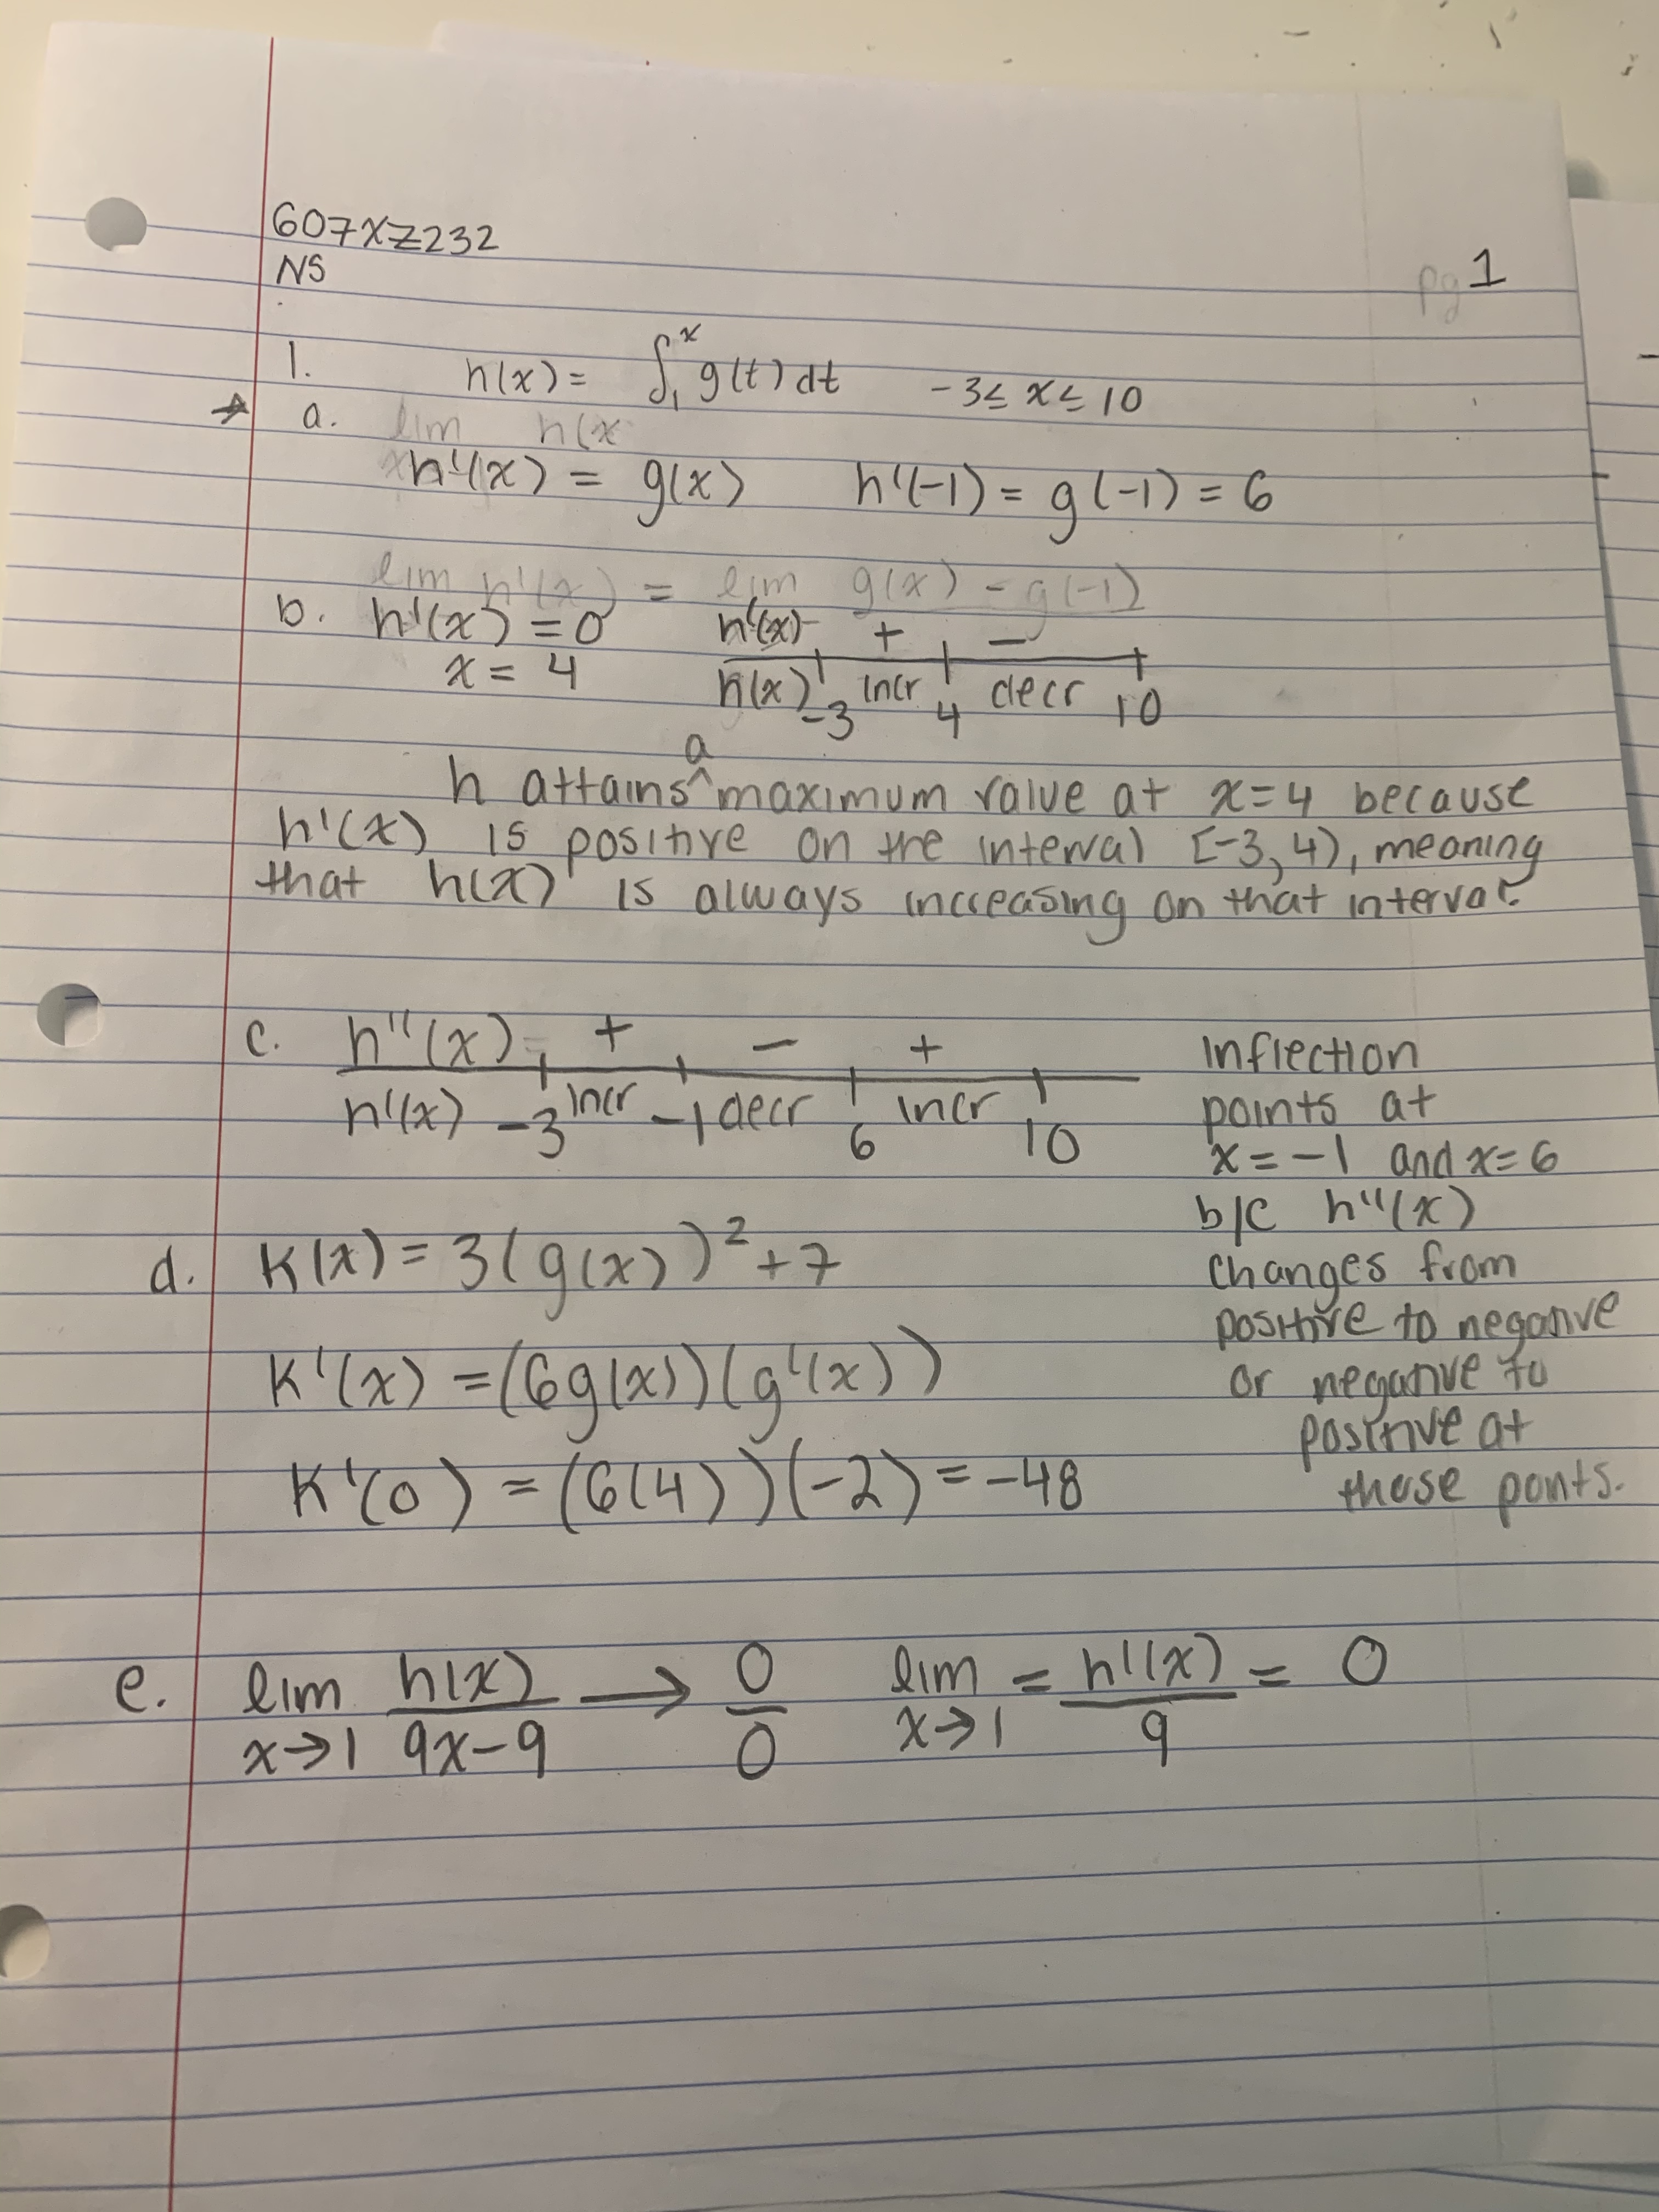 607XZ232
NS
pg 1
1. h(x) = ∫₁ˣ g(t) dt -3 ≤ x ≤ 10
a. lim h(x
x h'(x) = g(x) h'(-1) = g(-1) = 6
lim h'(x) = lim g(x) - g(-1)
b. h'(x) = 0 h'(x) + -
x = 4 h(x) -3 incr 4 decr 10
a
h attains ^ maximum value at x=4 because
h'(x) is positive on the interval [-3, 4), meaning
that h(x) is always increasing on that interval.
c. h''(x) + - +
h'(x) -3 incr -1 decr 6 incr 10
Inflection
points at
x = -1 and x = 6
b/c h''(x)
changes from
positive to negative
or negative to
positive at
those ponts.
d. K(x) = 3(g(x))² + 7
K'(x) = (6g(x))(g'(x))
K'(0) = (6(4))(-2) = -48
e. lim x→1 h(x)/9x-9 → 0/0 lim x→1 = h'(x)/9 = 0